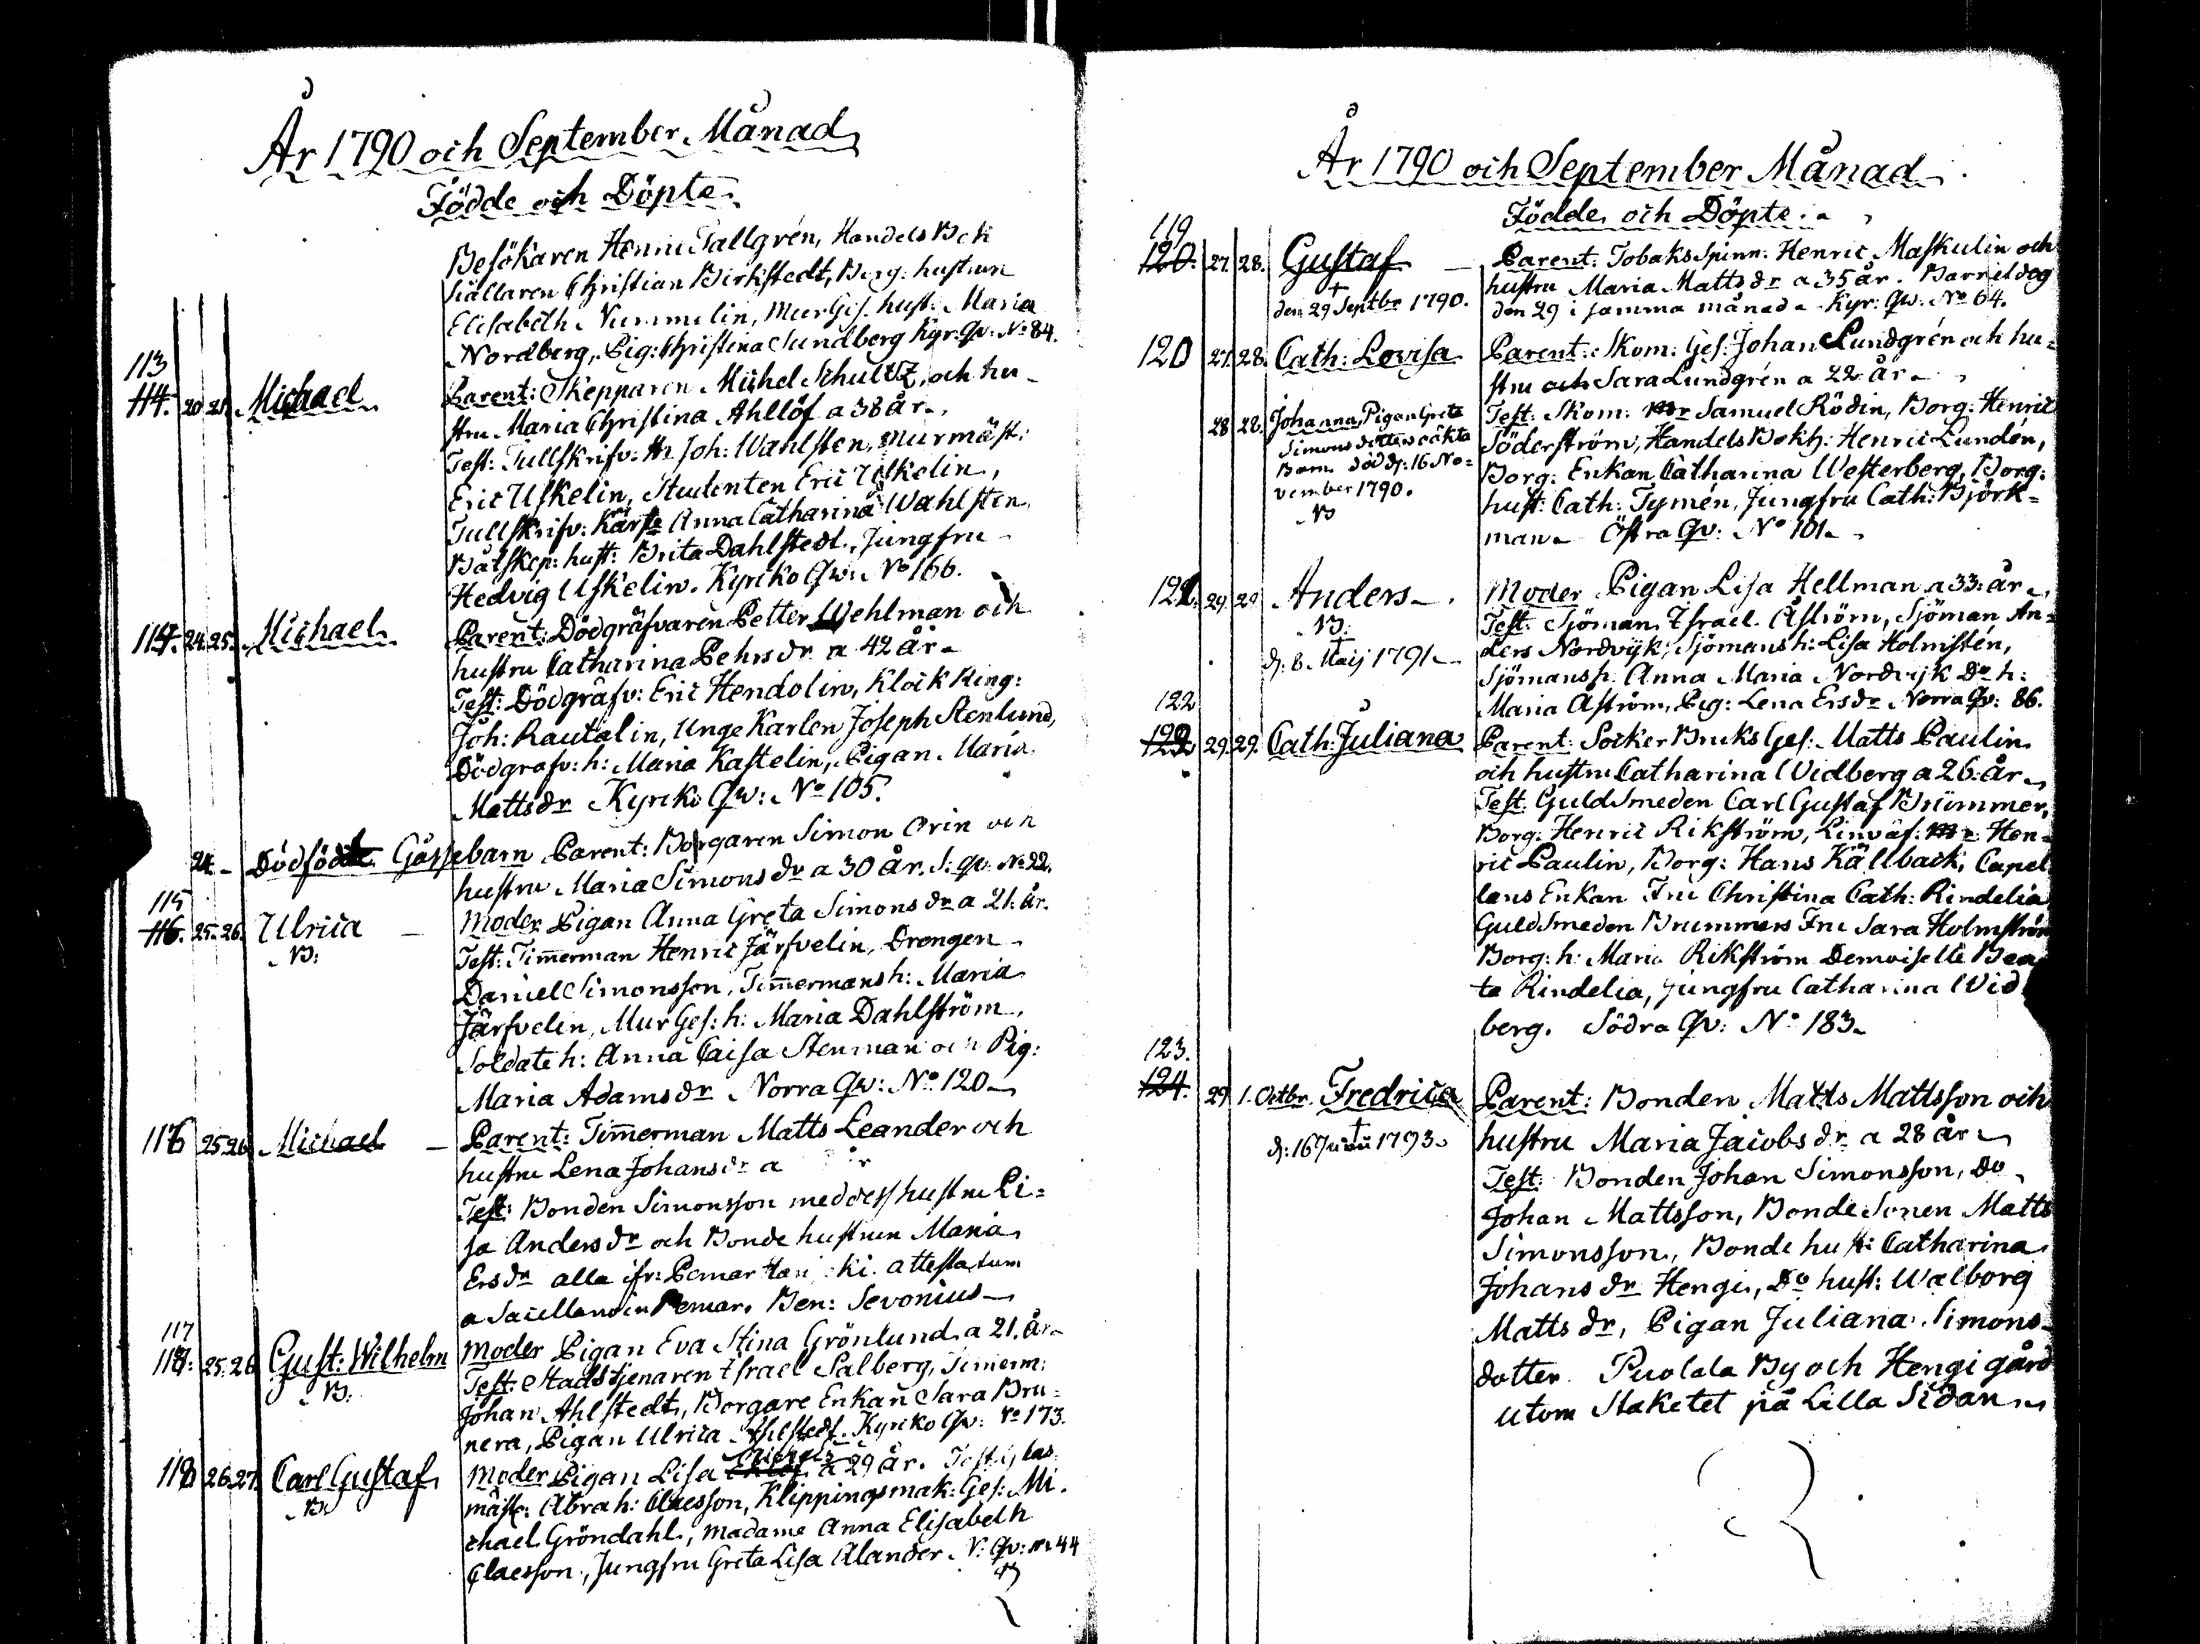 År 1790 och September Månad
Födde och Döpte
Besökaren Henric Tallgrén, Handels Bok
hållaren Christian Birkstedt, Borg: hustrun
Elisabeth Nummelin, Mur Ges. hust: Maria
Nordberg, Pig: Christina Sundberg Kyr: Qv: No 84.
113
114. 20 21. Michael Parent: Skepparen Michel Schultz, och hu-
stru Maria Christina Ahllöf a 38 år.
Test: Tullskrifv: Hr Joh: Wahlsten, Murmäst:
Eric Uskelin, Studenten Eric Uskelin,
Tullskrifv: Kärsta Anna Catharina Wahlsten
Båtskep: hust: Brita Dahlstedt, Jungfru
Hedvig Uskelin. Kyrko Qw: No 166.
114. 24. 25. Michael Parent: Dödgräfvaren Petter Wehlman och
hustru Catharina Pehrs dr a 42 år
Test: Dödgräfv: Eric Hendolin, Klock Ring:
Joh: Rautalin, Unge Karlen Joseph Stenlund,
Dödgrafv: h: Maria Kastelin, Pigan Maria
Matts dr Kyrko Qw: No 105.
24 - Dödfödt Gåssebarn Parent: Borgaren Simon Orin och
hustru Maria Simons dr a 30 år. S: qv. No 22.
115
116. 25. 26. Ulrica Moder Pigan Anna Greta Simons dr a 21. år.
B: Test: Timmerman Henric Järfvelin, Drengen
Daniel Simonsson, Timmermans h: Maria
Järfvelin, Mur Ges: h: Maria Dahlström,
Soldate h: Anna Caisa Stenman och Pig:
Maria Adams dr Norra Qw: No 120
116 25 26 Michael Parent: Timmerman Matts Leander och
hustru Lena Johans dr a år
Test: Bonden Simonsson med dess hustru Li=
sa Anders dr och Bonde hustrun Maria
Ers dr alla ifr: Pemar attestatum
a Sacellano in Pemar. Ben: Sevonius
117
118. 25. 26 Gust: Wilhelm Moder Pigan Eva Stina Grönlund a 21. år
B: Test: Stadstjenaren Israel Salberg, Timerm:
Johan Ahlstedt, Borgare Enkan Sara Bru=
nera, Pigan Ulrica Ahlstedt. Kyrko Qw: No 173.
118 26. 27. Carl Gustaf Moder Pigan Lisa a 29 år. Test: Glas
B. mäst: Abrah: Claesson, Klippingsmak: Ges: Mi
chael Gröndahl, Madame Anna Elisabeth
Claesson, Jungfru Greta Lisa Alander N: Qv: No 44
År 1790 och September Månad
Födde och Döpte
119
120. 27. 28. Gustaf Parent: Tobaks Spinn: Henric Maskulin och
hustru Maria Matts dr a 35 år. Barnet dog
den 29 Septbr 1790. den 29 i samma månad Kyr: Qw: No 64.
120 27. 28. Cath: Lovisa Parent: Skom: Ges: Johan Lundgrén och hu=
stru och Sara Lundgrén a 22 år
28 28. Johanna, Pigan Greta Test: Skom: Mr Samuel Rödin, Borg: Henric
Simons dotters oäkta Söderström, Handels Bokh: Henric Lundén,
Barn död d: 16 No= Borg: Enkan Catharina Westerberg, Borg:
vember 1790. hust: Cath: Tymén, Jungfru Cath: Björk=
B man Östra Qv: No 101
121. 29. 29 Anders Moder Pigan Lisa Hellman a 33: år
B: Test: Sjöman Israel Åström, Sjöman An=
d: 8 Maij 1791 ders Nordvijk, Sjömans h: Lisa Holmstén,
Sjömans h. Anna Maria Nordvijk Do h:
122 Maria Åström, Pig: Lena Ers dr Norra Qv: 86.
123 29. 29. Cath: Juliana Parent: Socker Bruks Ges: Matts Paulin
och hustru Catharina Widberg a 26. år
Test. Guld Smeden Carl Gustaf Brümmer,
Borg: Henric Rikström, Linväf: Mr Hen=
ric Paulin, Borg: Hans Källback, Capel
lans Enkan Fru Christina Cath: Rindelia
Guld Smeden Brummers Fru Sara Holmström
Borg: h: Maria Rikström Demoiselle Bea
ta Rindelia, jungfru Catharina Wid
berg. Södra Qv: No 183
123.
124. 29 1. Octbr. Fredrica Parent: Bonden Matts Mattsson och
d: 16 Junii 1793 hustru Maria Jacobs dr a 28 år
Test: Bonden Johan Simonsson, Do
Johan Mattsson, Bonde Sonen Matts
Simonsson, Bonde hust: Catharina
Johans dr Hengi, Do hust: Walborg
Matts dr, Pigan Juliana Simons-
dotter. Puolala By och Hengi gård
utom Staketet på Lilla Sidan